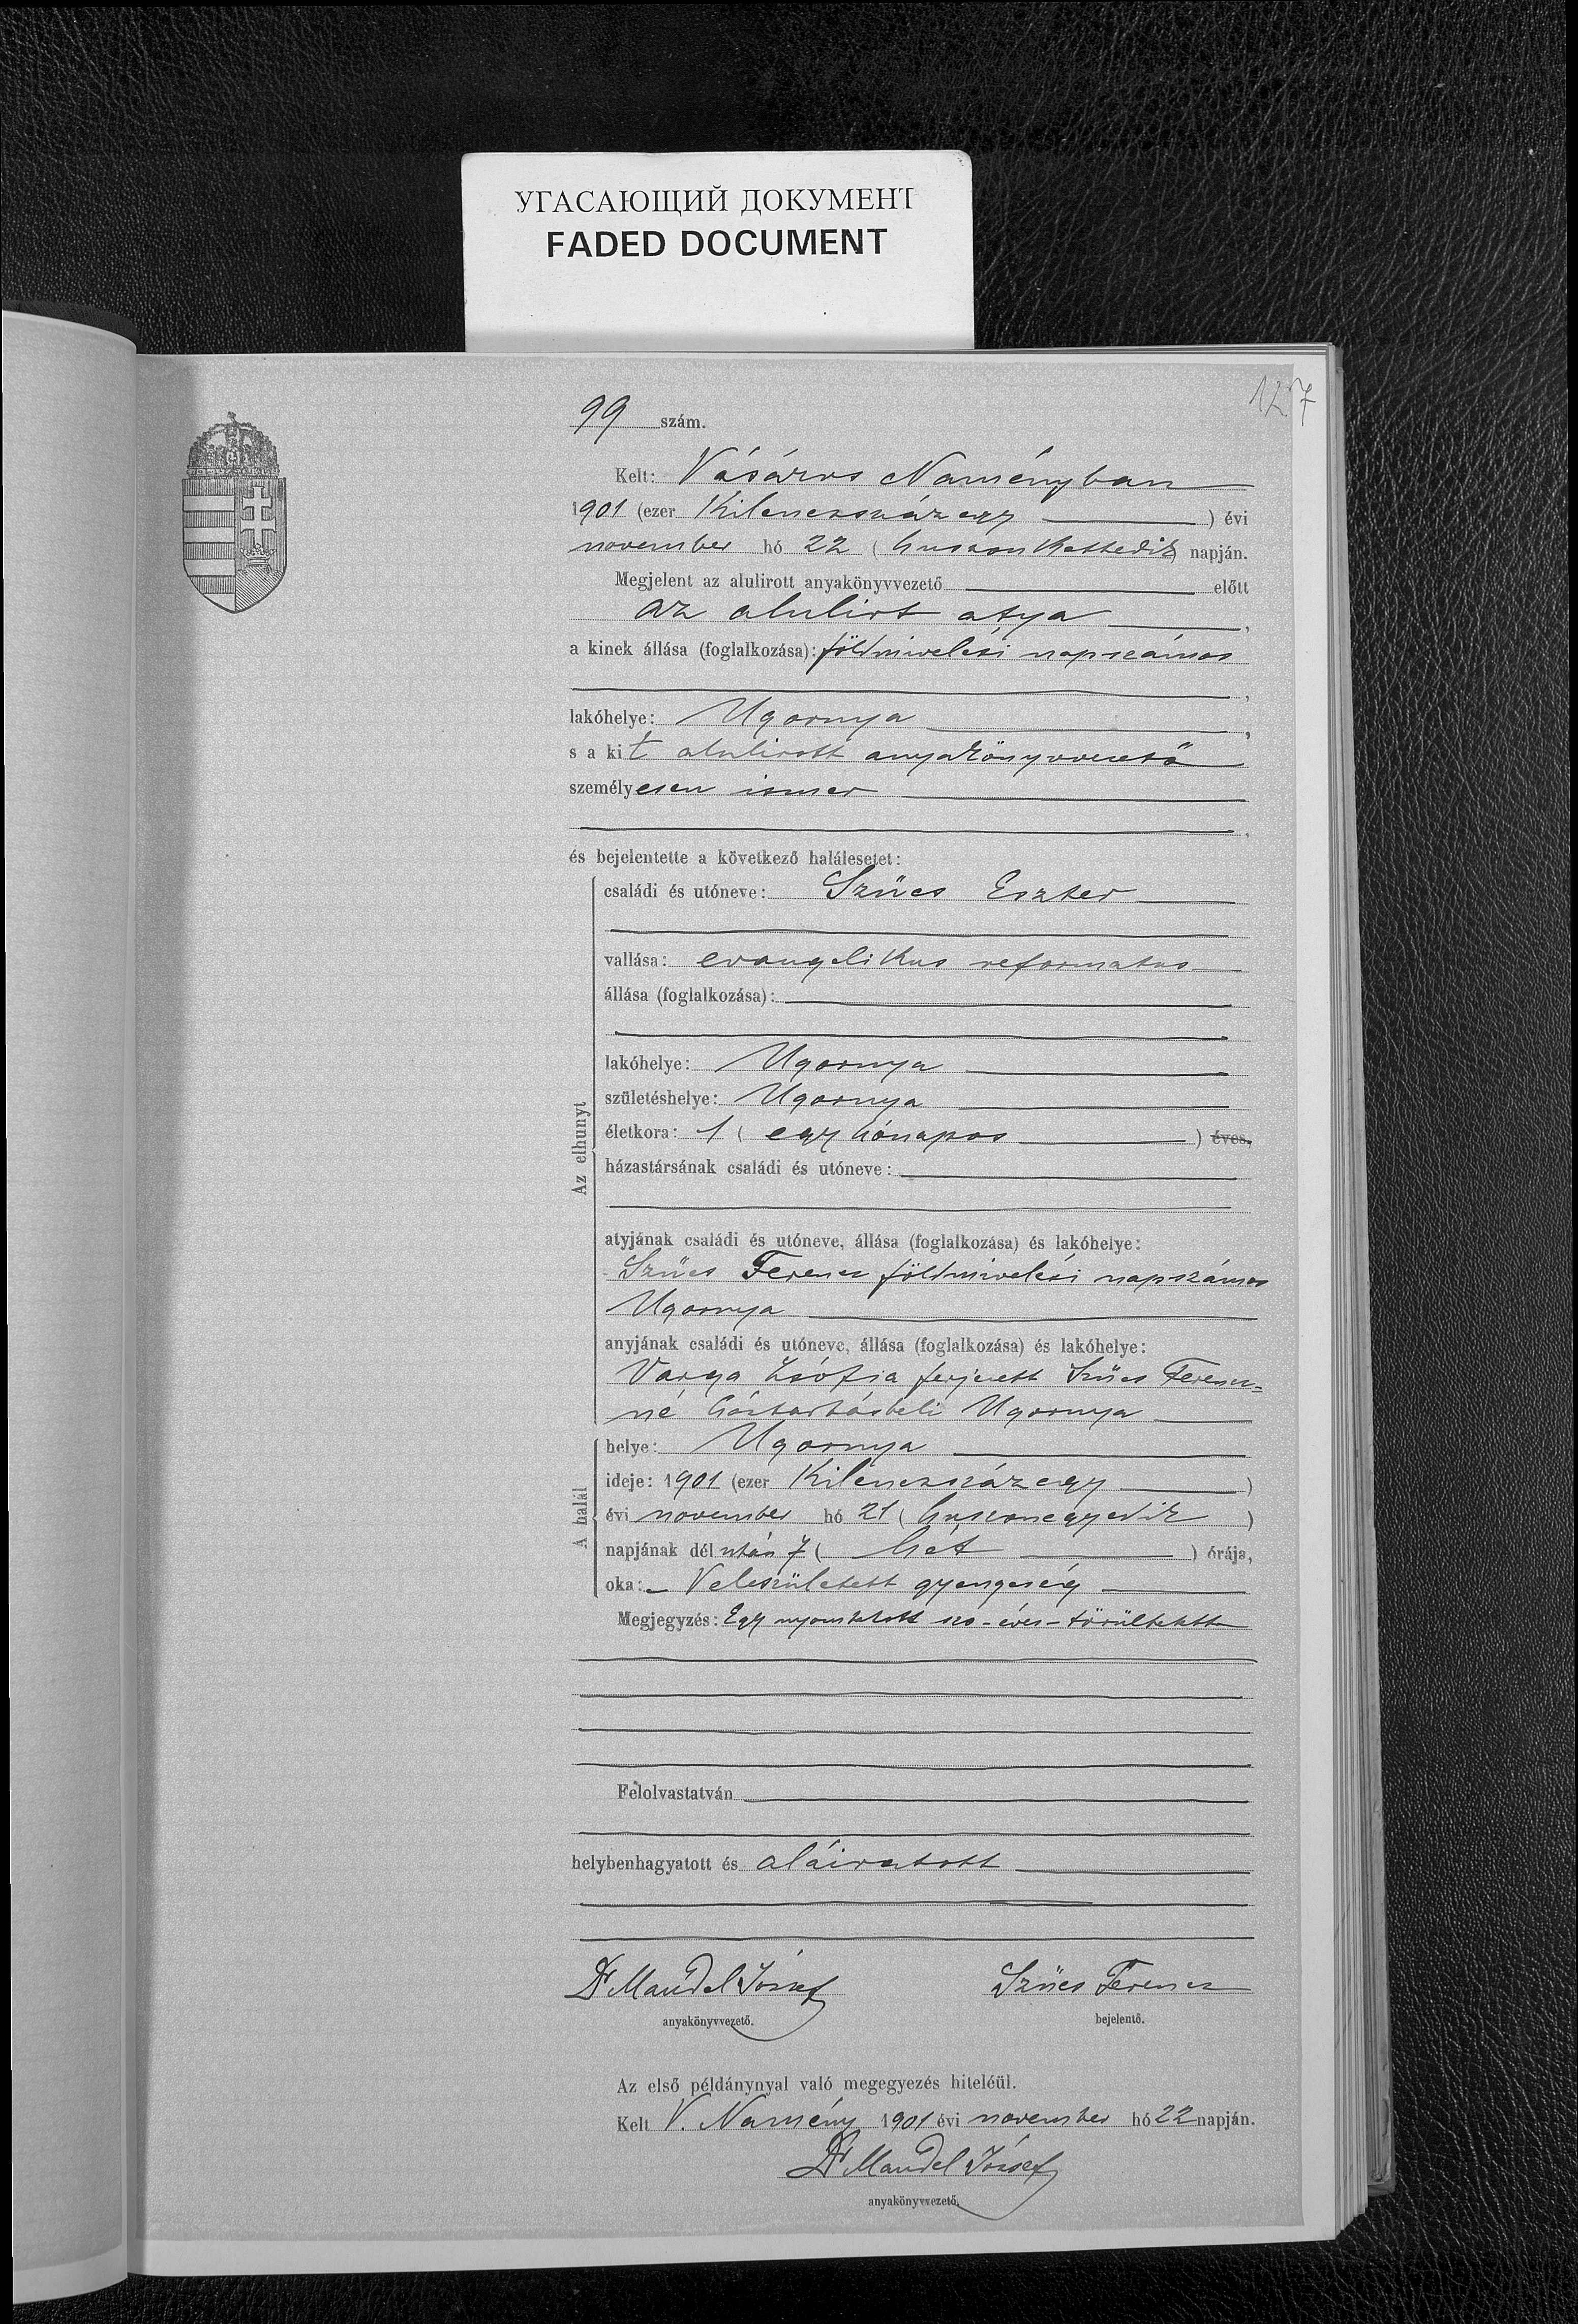 УГАСАЮЩИЙ ДОКУМЕНТ
FADED DOCUMENT
127
99 szám.
Kelt: Vásáros Naményban
1901 (ezer Kilenczszázegy ) évi
november hó 22 ( huszonkettedik ) napján.
Megjelent az alulirott anyakönyvvezető előtt
az alulirt atya ,
a kinek állása (foglalkozása): földmivelési napszámos
,
lakóhelye: Ugornya ,
s a kit alulirott anyakönyvvezető
személyesen ismer
,
és bejelentette a következő halálesetet:
Az elhunyt
családi és utóneve: Szücs Eszter
vallása: evangelikus reformatus
állása (foglalkozása):
lakóhelye: Ugornya
születéshelye: Ugornya
életkora: 1 ( egy hónapos ) éves,
házastársának családi és utóneve:
atyjának családi és utóneve, állása (foglalkozása) és lakóhelye:
Szücs Ferencz földmivelési napszámos
Ugornya
anyjának családi és utóneve, állása (foglalkozása) és lakóhelye:
Varga Zsófia ferjezett Szücs Ferencz=
né háztartásbeli Ugornya
A halál
helye: Ugornya
ideje: 1901 (ezer Kilenczszázegy )
évi november hó 21 ( huszonegyedik )
napjának dél után 7 ( hét ) órája,
oka: Veleszületett gyengeség
Megjegyzés: Egy nyomtatott szó - éves - törültetett
Felolvastatván
helybenhagyatott és aláiratott
Dr Mandel József Szücs Ferencz
anyakönyvvezető. bejelentő.
Az első példánynyal való megegyezés hiteléül.
Kelt V. Namény 1901 évi november hó 22 napján.
Dr Mandel József
anyakönyvvezető.